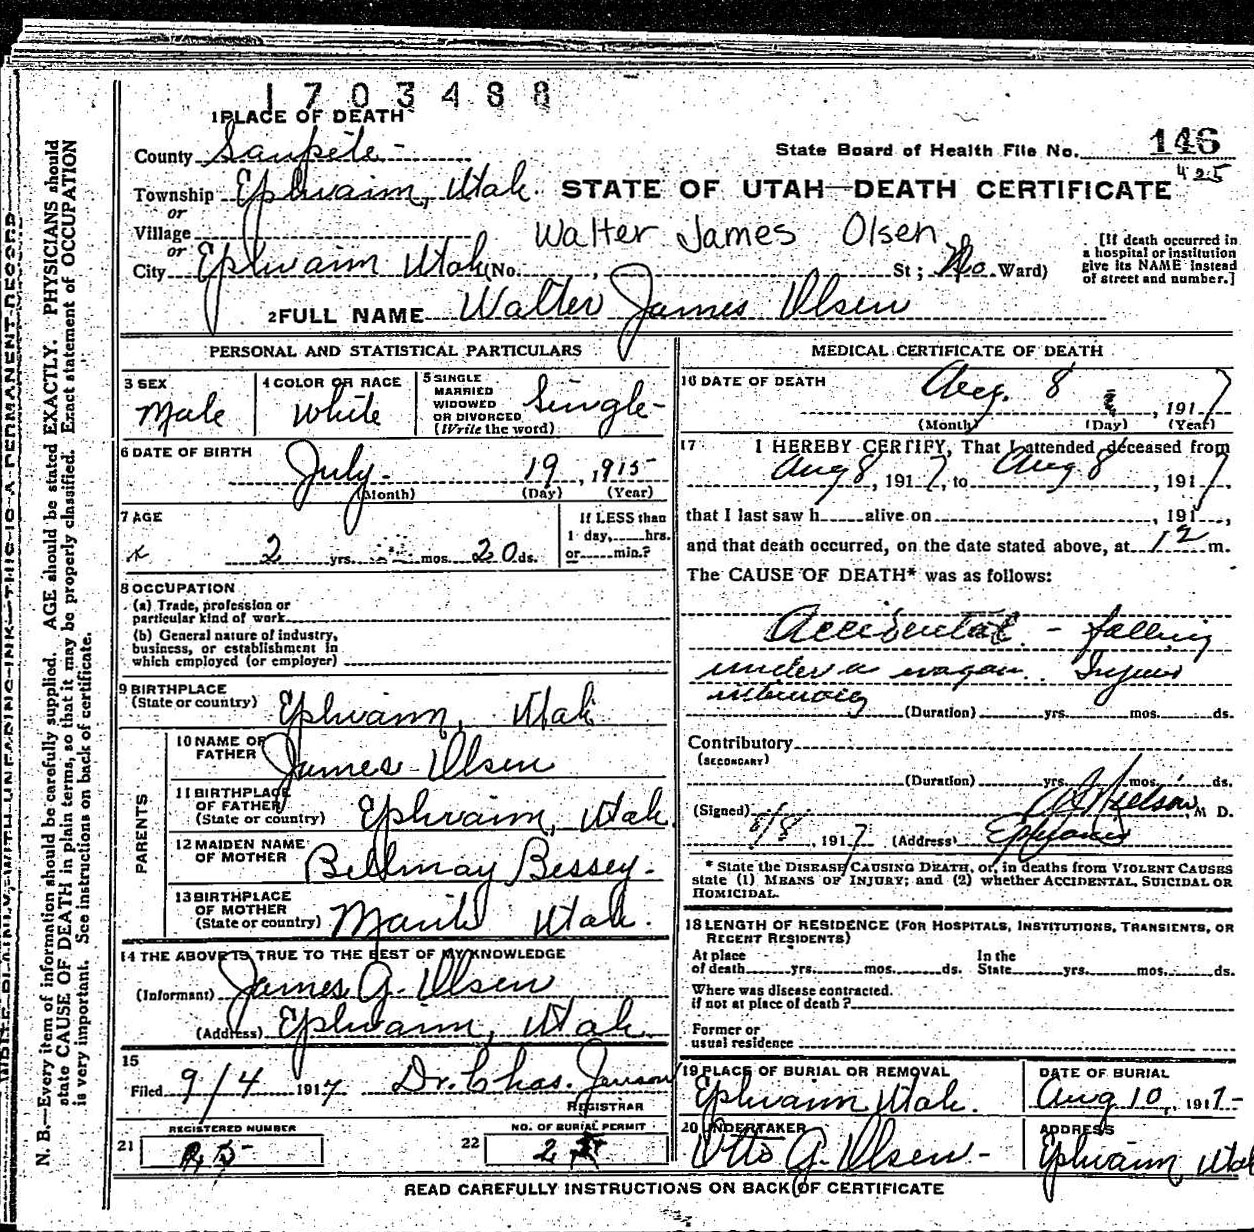 1703488
1 PLACE OF DEATH
County Sanpete
State Board of Health File No. 146
425
Township Ephraim, Utah.
or
STATE OF UTAH—DEATH CERTIFICATE
Village
or
Walter James Olsen
City Ephraim Utah (No. , St; Ward)
[If death occurred in
a hospital or institution
give its NAME instead
of street and number.]
2 FULL NAME Walter James Olsen
PERSONAL AND STATISTICAL PARTICULARS
3 SEX
Male
4 COLOR OR RACE
White
5 SINGLE
MARRIED
WIDOWED
OR DIVORCED
(Write the word)
Single
6 DATE OF BIRTH
July 19, 1915
(Month) (Day) (Year)
7 AGE
2 yrs. mos. 20 ds.
If LESS than
1 day, hrs.
or min.?
8 OCCUPATION
(a) Trade, profession or
particular kind of work
(b) General nature of industry,
business, or establishment in
which employed (or employer)
9 BIRTHPLACE
(State or country) Ephraim, Utah
PARENTS
10 NAME OF
FATHER James Olsen
11 BIRTHPLACE
OF FATHER
(State or country) Ephraim, Utah.
12 MAIDEN NAME
OF MOTHER Bellmay Bessey.
13 BIRTHPLACE
OF MOTHER
(State or country) Manti Utah.
14 THE ABOVE IS TRUE TO THE BEST OF MY KNOWLEDGE
(Informant) James A. Olsen
(Address) Ephraim, Utah
15
Filed 9/4 1917 Dr. Chas. Jenson
REGISTRAR
REGISTERED NUMBER
21
NO. OF BURIAL PERMIT
22
MEDICAL CERTIFICATE OF DEATH
16 DATE OF DEATH
Aug. 8, 1917
(Month) (Day) (Year)
17 I HEREBY CERTIFY, That I attended deceased from
Aug 8, 1917, to Aug 8, 1917
that I last saw h alive on , 191 ,
and that death occurred, on the date stated above, at 12 m.
The CAUSE OF DEATH* was as follows:
Accidental - falling
under a wagon. Injured
internally
(Duration) yrs. mos. ds.
Contributory
(SECONDARY)
(Duration) yrs. mos. ds.
(Signed) Nielson, M D.
8/8, 1917 (Address) Ephraim
* State the DISEASE CAUSING DEATH, or, in deaths from VIOLENT CAUSES
state (1) MEANS OF INJURY; and (2) whether ACCIDENTAL, SUICIDAL OR
HOMICIDAL.
18 LENGTH OF RESIDENCE (FOR HOSPITALS, INSTITUTIONS, TRANSIENTS, OR
RECENT RESIDENTS)
At place
of death yrs. mos. ds.
In the
State yrs. mos. ds.
Where was disease contracted.
if not at place of death?
Former or
usual residence
19 PLACE OF BURIAL OR REMOVAL
Ephraim Utah.
DATE OF BURIAL
Aug 10, 1917
20 UNDERTAKER
Otto A. Olsen
ADDRESS
Ephraim Utah
READ CAREFULLY INSTRUCTIONS ON BACK OF CERTIFICATE
WRITE PLAINLY, WITH UNFADING INK—THIS IS A PERMANENT RECORD
N. B.—Every item of information should be carefully supplied. AGE should be stated EXACTLY. PHYSICIANS should
state CAUSE OF DEATH in plain terms, so that it may be properly classified. Exact statement of OCCUPATION
is very important. See instructions on back of certificate.